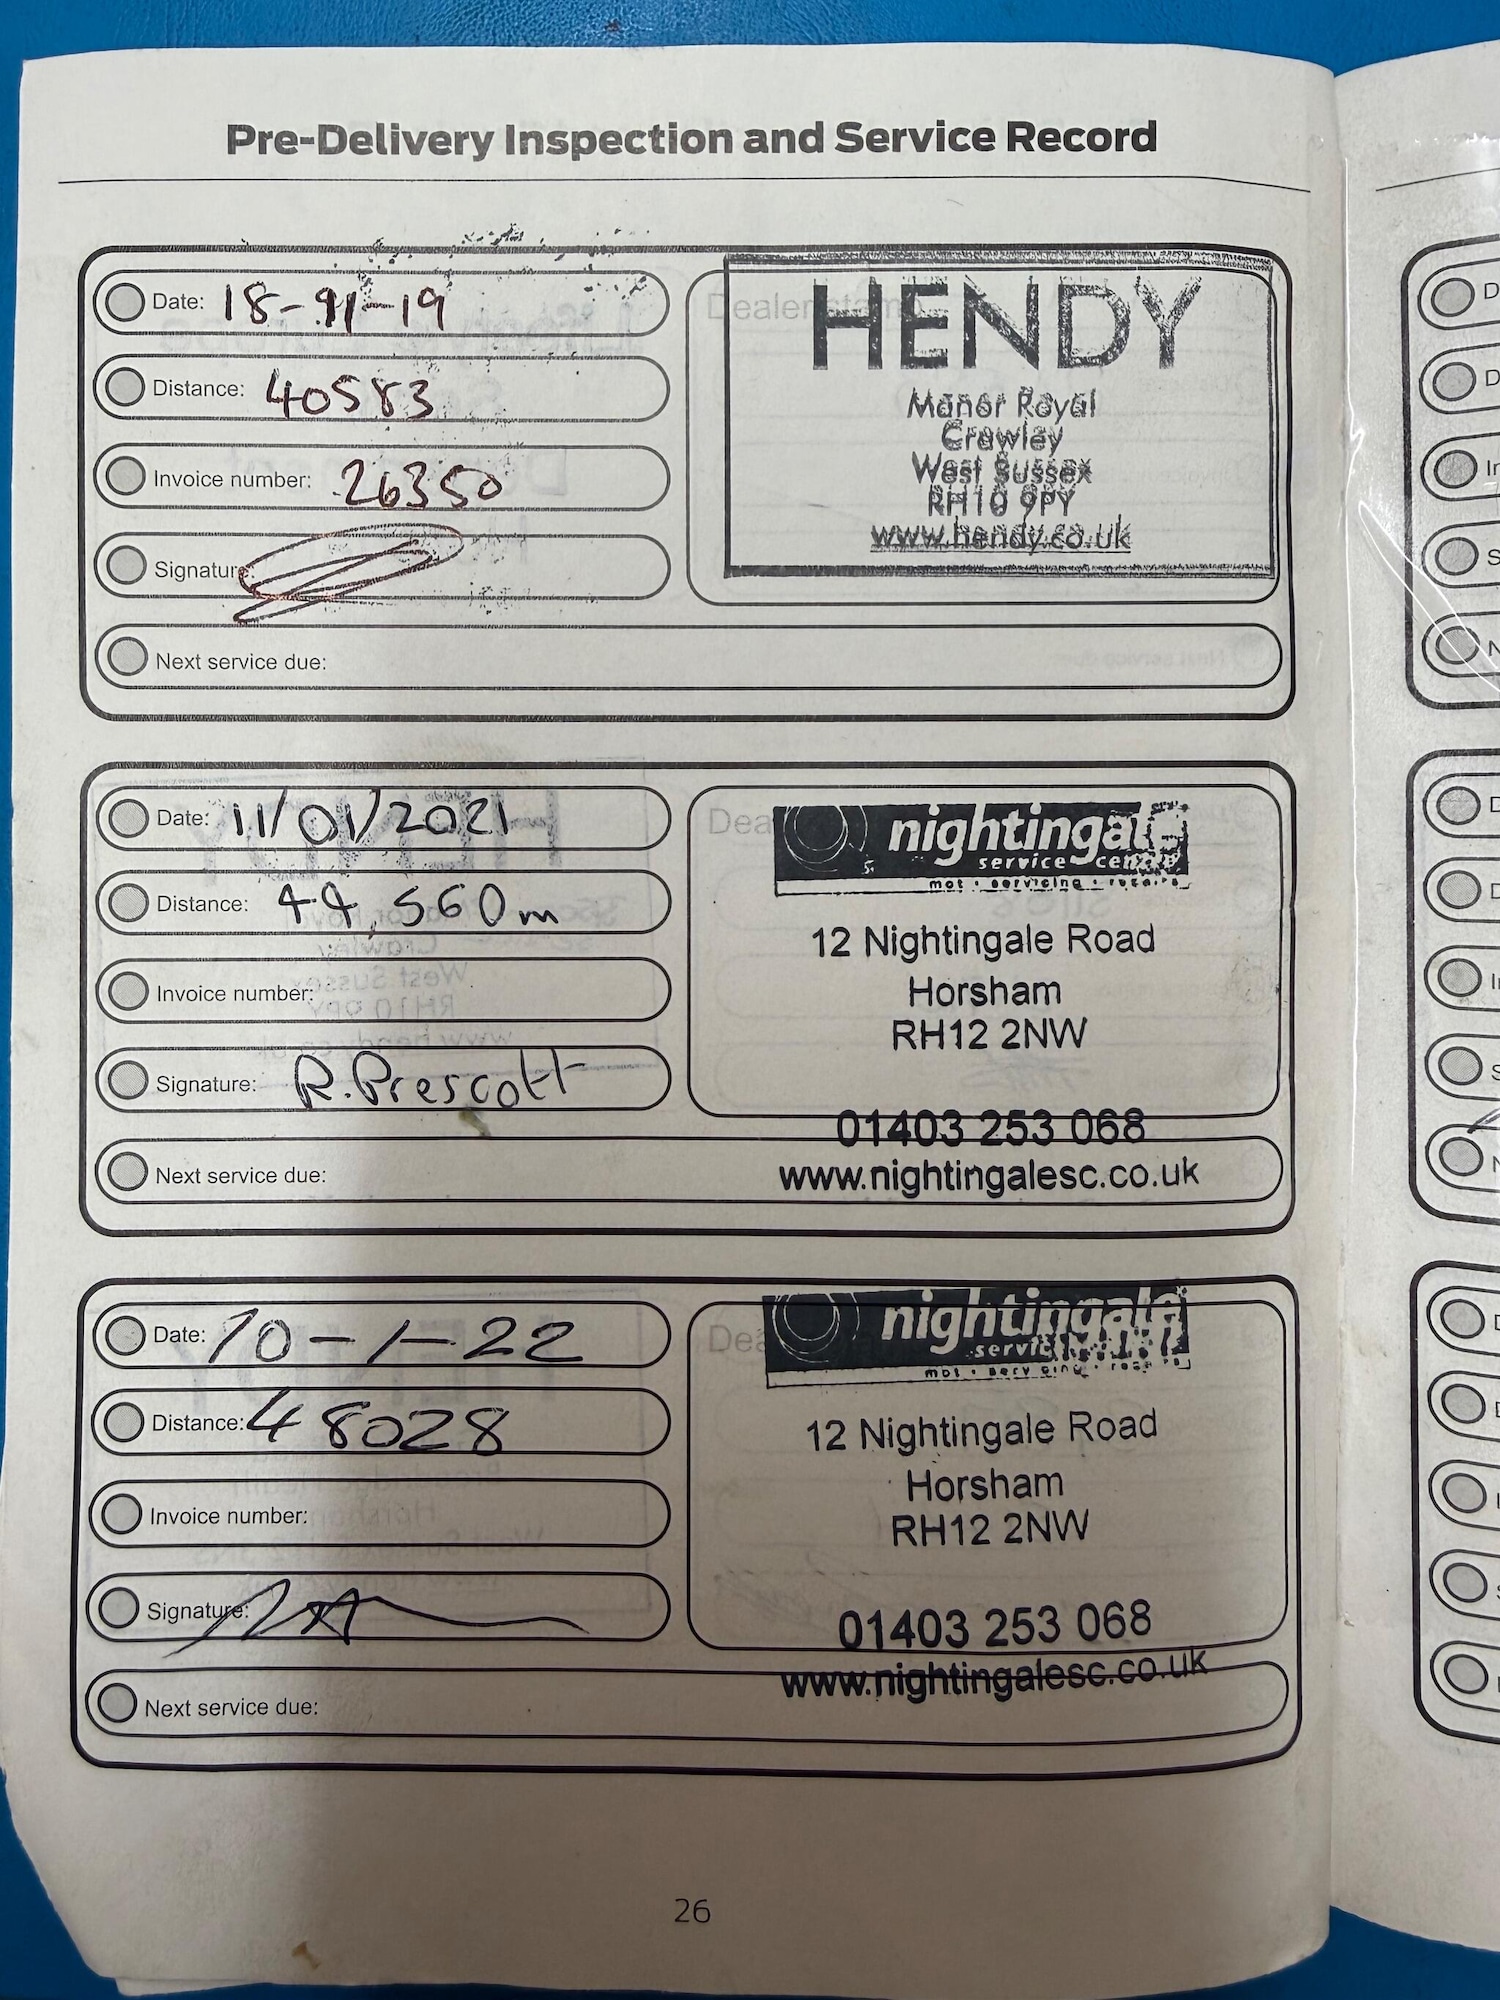 Pre-Delivery Inspection and Service Record
Date: 18-11-19
Distance: 40583
Invoice number: 26350
Signature:
Next service due:
Dealer stamp
HENDY
Manor Royal
Crawley
West Sussex
RH10 9PY
www.hendy.co.uk
Date: 11/01/2021
Distance: 44,560m
Invoice number:
Signature: R.Prescott
Next service due:
nightingale
service centre
mot • servicing • repairs
12 Nightingale Road
Horsham
RH12 2NW
01403 253 068
www.nightingalesc.co.uk
Date: 10-1-22
Distance: 48028
Invoice number:
Signature:
Next service due:
nightingale
service
mot • servicing • repairs
12 Nightingale Road
Horsham
RH12 2NW
01403 253 068
www.nightingalesc.co.uk
26